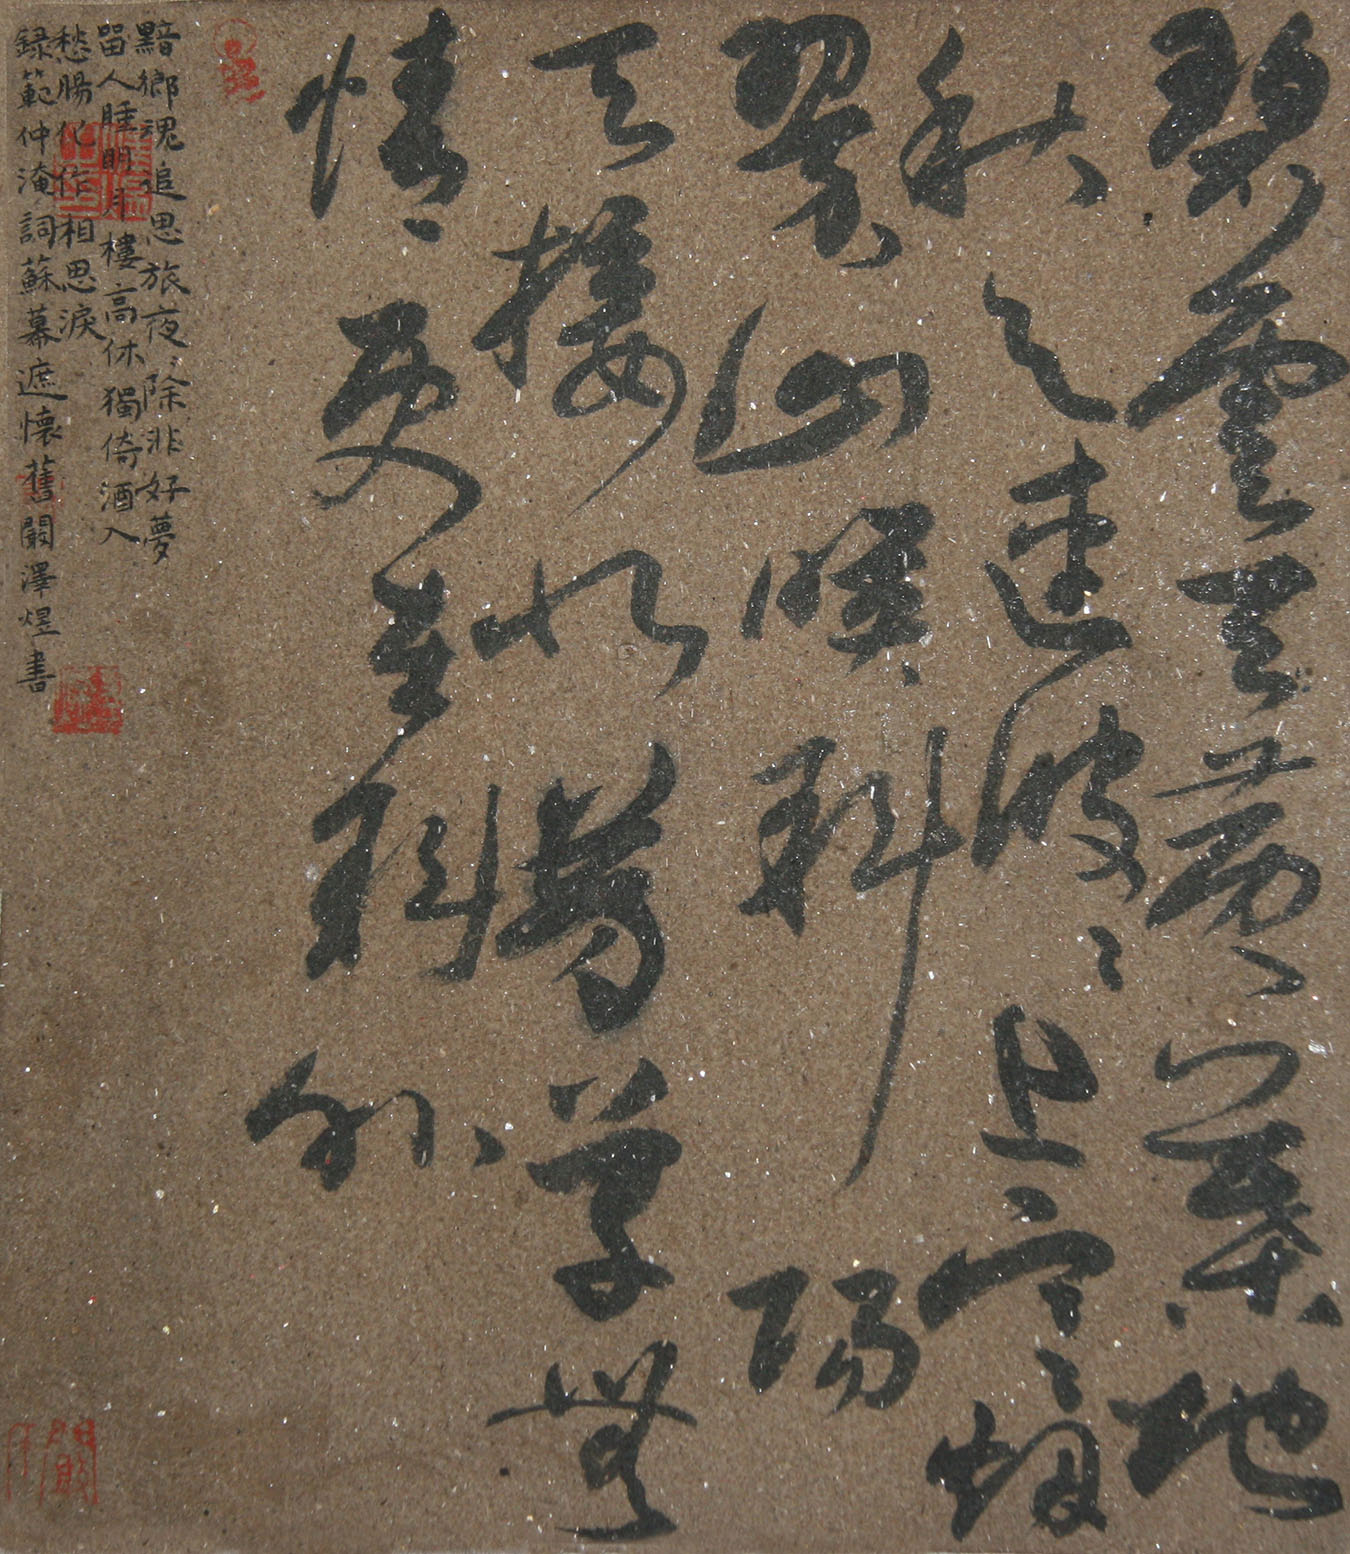 碧雲天黃葉地
秋色連波〻上寒烟
翠山映斜陽
天接水芳草無
情更在斜外
黯鄉魂追思旅夜〻除非好夢
留人睡明月樓高休獨倚酒入
愁腸化作相思淚
錄範仲淹詞蘇幕遮懷舊嚴澤煜書